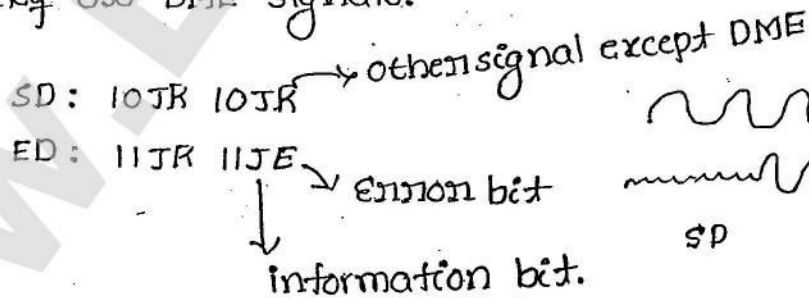 use DME signals.
SD: 10JK 10JK → other signal except DME
ED: 11JK 11JE → Error bit
SD
information bit.